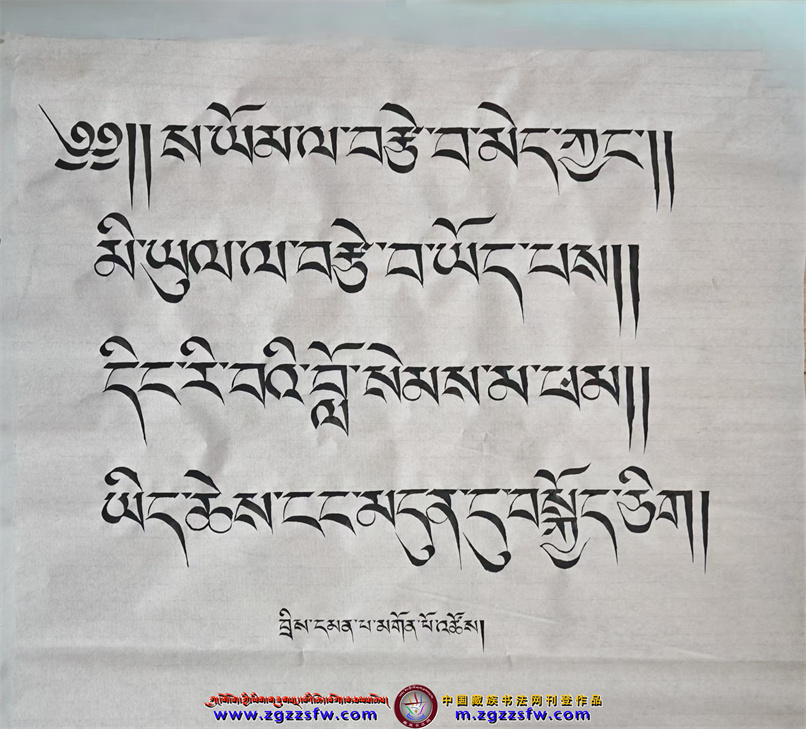 ༄༅།།ས་ཡོམ་ལ་བརྩེ་བ་མེད་ཀྱང་།།
མི་ཡུལ་ལ་བརྩེ་བ་ཡོད་པས།།
དིང་རི་བའི་བློ་སེམས་མ་ཕམ།།
ཡིད་ཆེས་ངང་མདུན་དུ་བསྐྱོད་ཅིག།
བྲིས་དམན་པ་མགོན་པོ་འཚོས།
中国藏族书法网刊登作品
www.zgzzsfw.com m.zgzzsfw.com